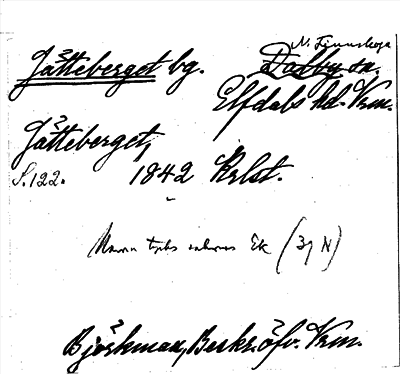 Jätteberget bg. N. Finnskoga
Dalby sn.
Elfdals hd. Vrm.
Jätteberget,
S. 122. 1842 Krlst.
Namn saknas Ek (3j N)
Björkman, Beskr. öfv. Vrm.